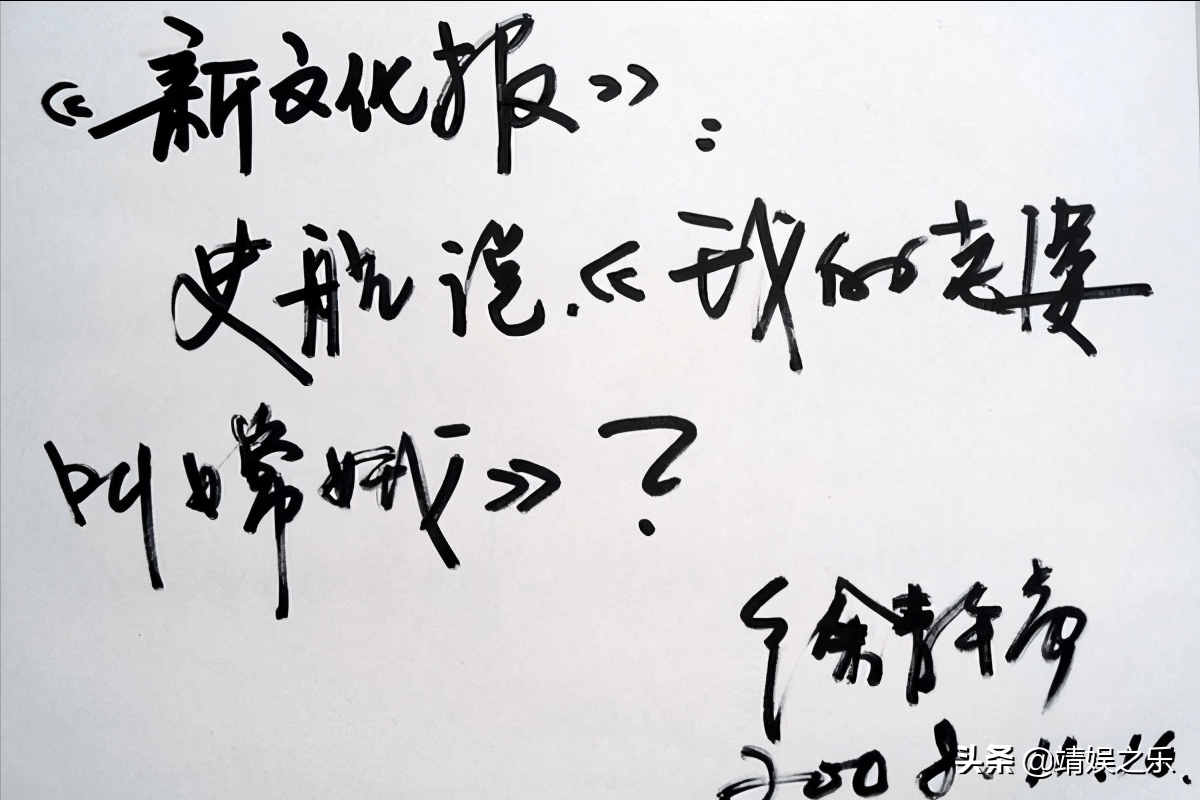 《新文化报》:
史航说.《我的老婆
叫嫦娥》?
徐
2008.11.16.
头条 @靖娱之乐